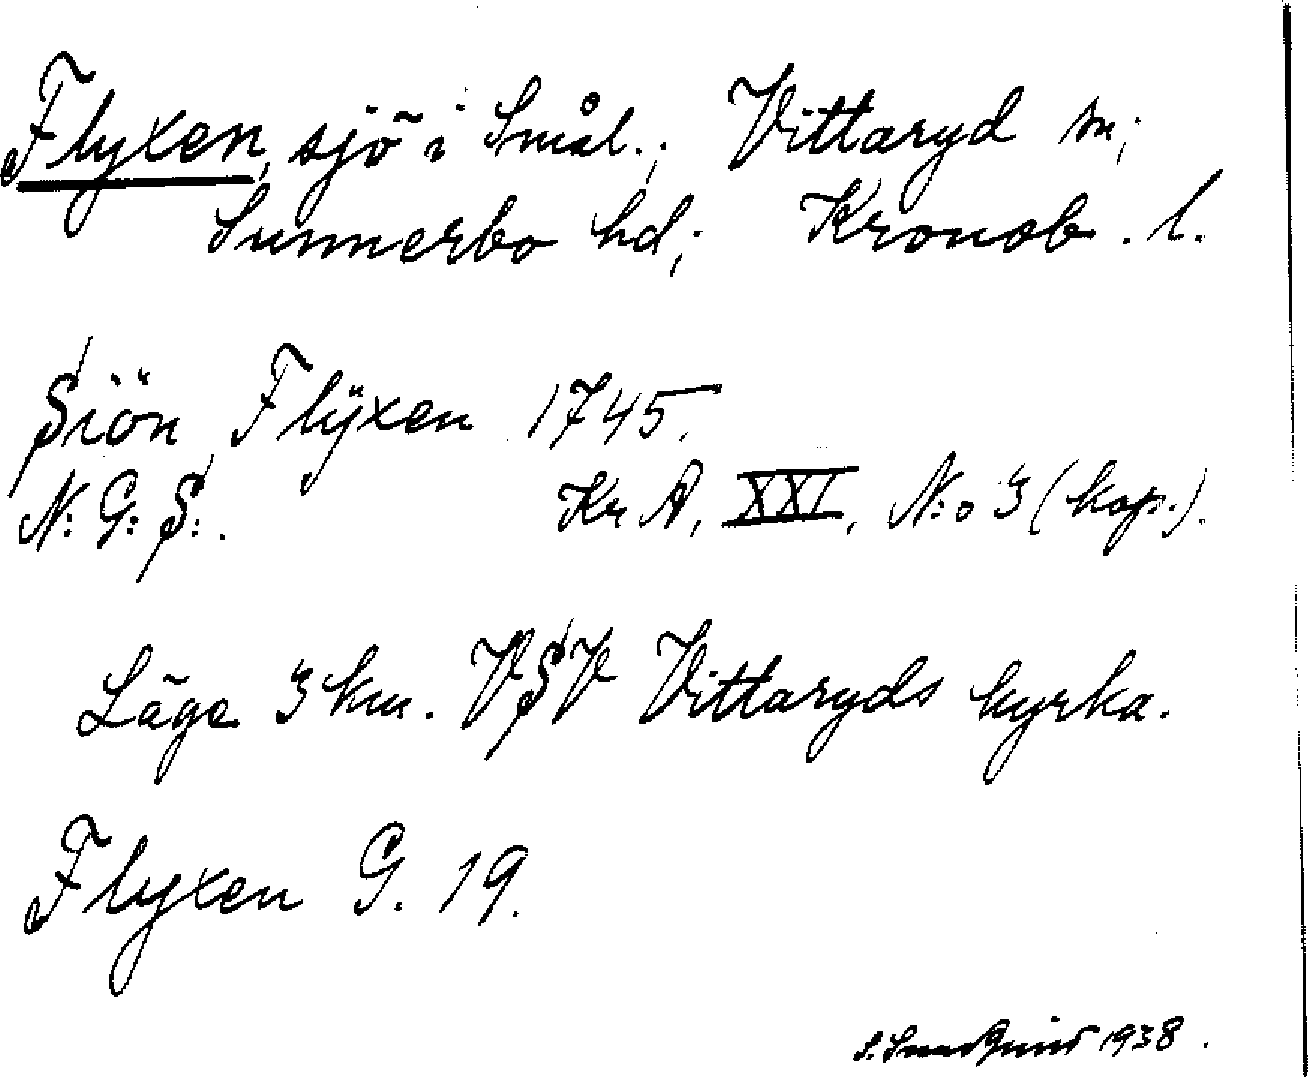 Flyxen, sjö i Smål.; Vittaryd sn;
Sunnerbo hd; Kronob. l.
Siön Flÿxen 1745.
N: G: S:. Kr A, XXI, N:o 3 (kop.).
Läge 3 km. VSV Vittaryds kyrka.
Flyxen G. 19.
1938.